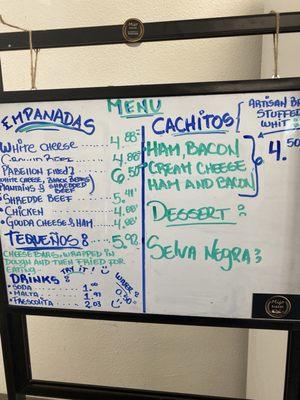 MENU
EMPANADAS
WHITE CHEESE .... 4.88
GROUND BEEF .... 4.88
PABELLON FRIED? 6.50
WHITE CHEESE, BLACK BEANS
PLANTAINS & SHREDDED BEEF
• SHREDDE BEEF .... 5.41
• CHICKEN .... 4.88
• GOUDA CHEESE & HAM.... 4.88
TEQUEÑOS: ..... 5.92
CHEESE BARS, WRAPPED IN
DOUGH AND THEN FRIED FOR
EATING TRY IT!
DRINKS:
• SODA ..... 1.00
• MALTA ..... 1.97
• FRESCOLITA .... 2.03
WATER 0.50
CACHITOS
ARTISAN
STUFFED
WITH:
• HAM, BACON
CREAM CHEESE
HAM AND BACON
4.50
DESSERT:
SELVA NEGRA: